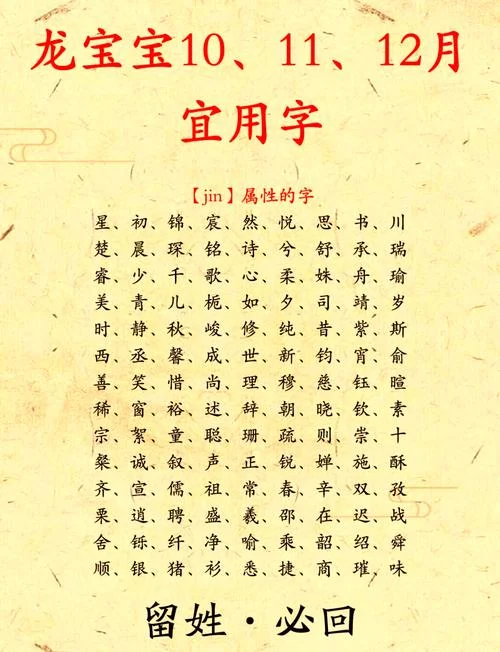 龙宝宝10、11、12月
宜用字
【jin】属性的字
星、初、锦、宸、然、悦、思、书、川
楚、晨、琛、铭、诗、兮、舒、承、瑞
睿、少、千、歌、心、柔、姝、舟、瑜
美、青、儿、栀、如、夕、司、靖、岁
时、静、秋、峻、修、纯、昔、紫、斯
西、丞、馨、成、世、新、钧、宵、俞
善、笑、惜、尚、理、穆、慈、钰、暄
稀、窗、裕、述、辞、朝、晓、钦、素
宗、絮、童、聪、珊、疏、则、崇、十
粲、诚、叙、声、正、锐、婵、施、酥
齐、宣、儒、祖、常、春、辛、双、孜
栗、逍、聘、盛、羲、邵、在、迟、战
舍、铄、纤、净、喻、乘、韶、绍、舜
顺、银、猪、衫、悉、捷、商、璀、味
留姓·必回